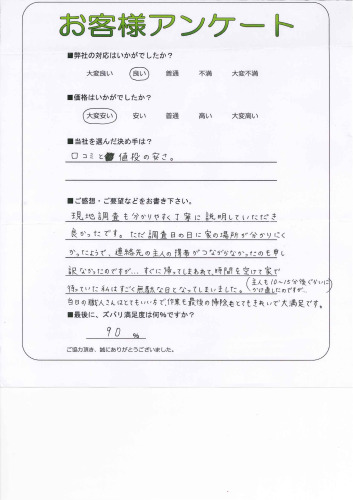 お客様アンケート
■弊社の対応はいかがでしたか?
大変良い 良い 普通 不満 大変不満
■価格はいかがでしたか?
大変安い 安い 普通 高い 大変高い
■当社を選んだ決め手は?
口コミと 値段の安さ。
■ご感想・ご要望などをお書き下さい。
現地調査も分かりやすく丁寧に説明していただき
良かったです。ただ調査の日に家の場所が分かりにく
かったようで、連絡先の主人の携帯がつながらなかったのも申し
訳なかったのですが...すぐに帰ってしまわれて、時間を空けて家で
待っていた私はすごく無駄な日となってしまいました。(主人も10~15分後ぐらいに
かけ直したのですが...)
当日の職人さんはとてもいい方で、作業も最後の掃除もとてもきれいで大満足です。
■最後に、ズバリ満足度は何%ですか?
90 %
ご協力頂き、誠にありがとうございました。